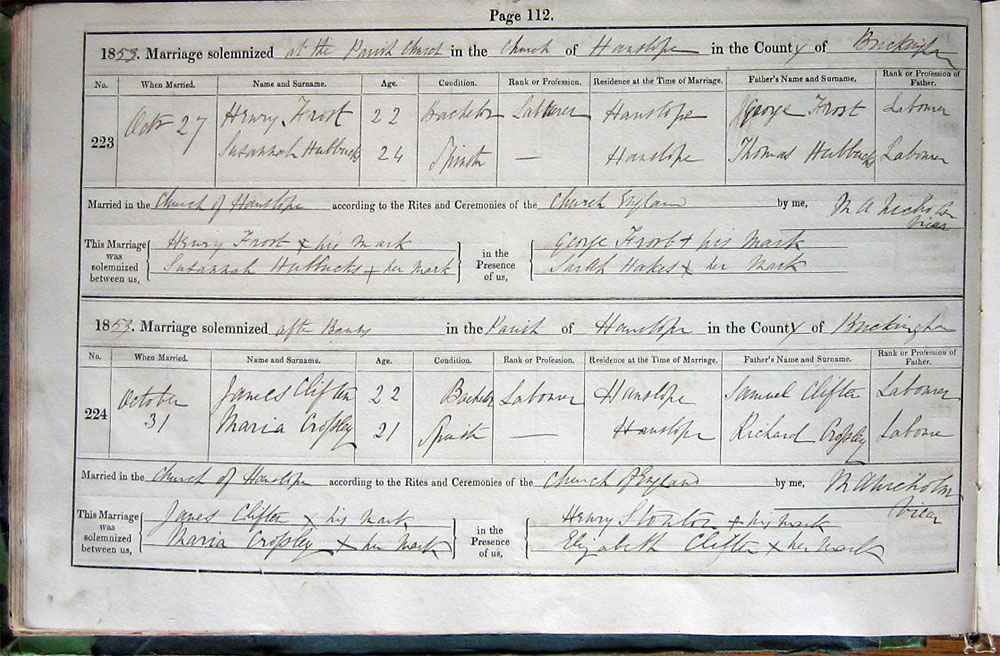 Page 112.
1853. Marriage solemnized at the Parish Church in the Church of Hanslope in the County of Buckingham
No. When Married. Name and Surname. Age. Condition. Rank or Profession. Residence at the Time of Marriage. Father's Name and Surname. Rank or Profession of Father.
223 Octr 27 Henry Frost 22 Bachelor Labourer Hanslope George Frost Labourer
Susannah Hubbucks 24 Spinster — Hanslope Thomas Hubbucks Labourer
Married in the Church of Hanslope according to the Rites and Ceremonies of the Church England by me, M A Nicholson
Vicar
This Marriage was solemnized between us, Henry Frost x his mark in the Presence of us, George Frost + his mark
Susannah Hubbucks x her mark Sarah Hakes x her mark
1853. Marriage solemnized after Banns in the Parish of Hanslope in the County of Buckingham
No. When Married. Name and Surname. Age. Condition. Rank or Profession. Residence at the Time of Marriage. Father's Name and Surname. Rank or Profession of Father.
224 October 31 James Clifton 22 Bachelor Labourer Hanslope Samuel Clifton Labourer
Maria Cropley 21 Spinster — Hanslope Richard Cropley Labourer
Married in the Church of Hanslope according to the Rites and Ceremonies of the Church of England by me, M A Nicholson
Vicar
This Marriage was solemnized between us, James Clifton x his mark in the Presence of us, Henry Stonton x his mark
Maria Cropley x her mark Elizabeth Clifton x her mark